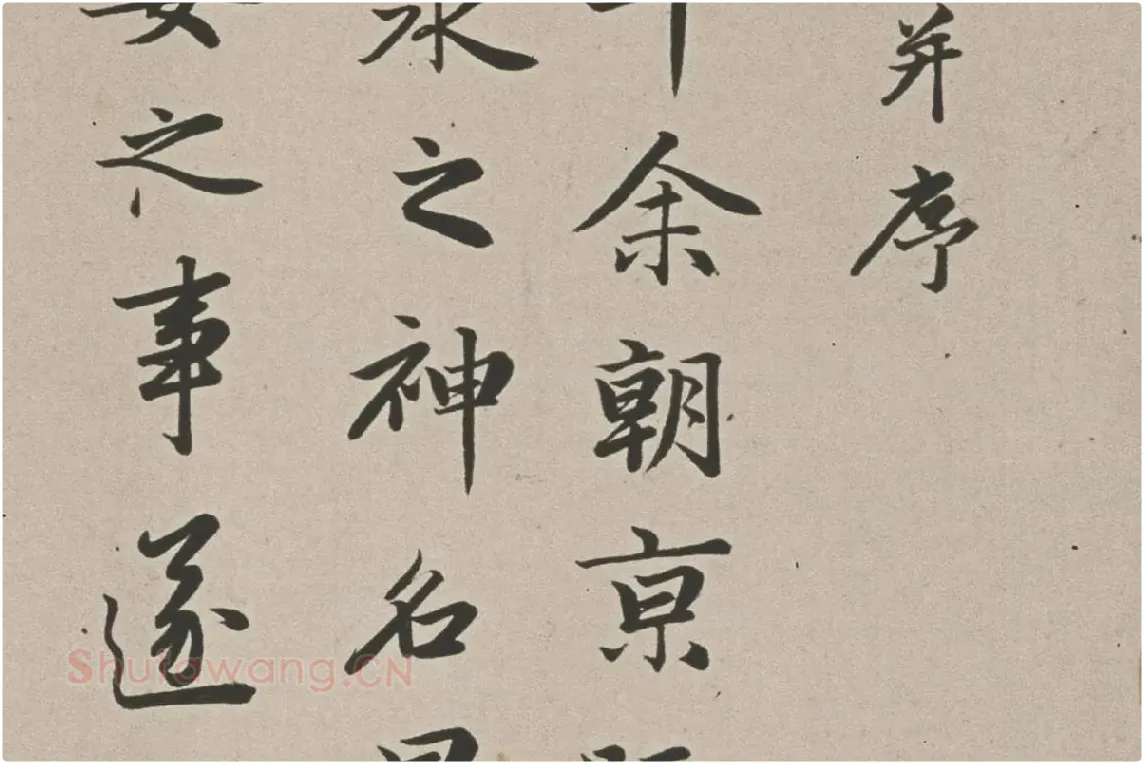 并序
余朝京
水之神名
女之事遂
Shufawang.CN